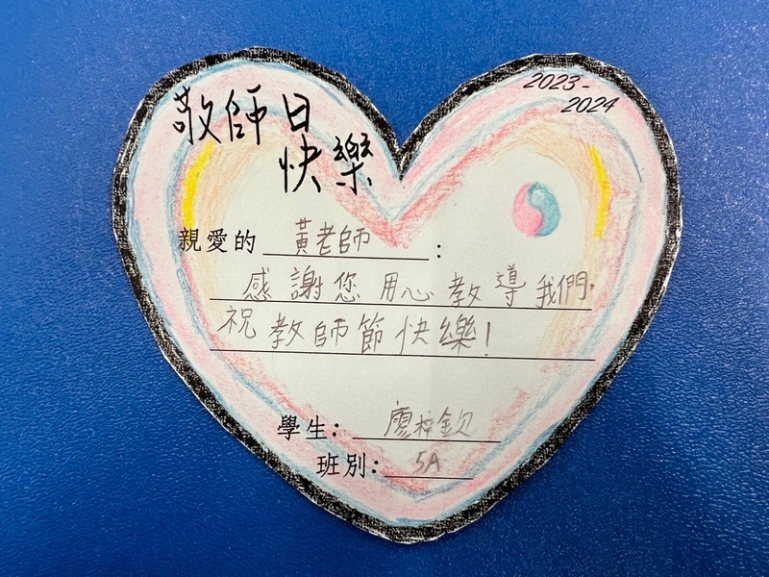 敬師日
快樂
2023-
2024
親愛的 黃老師 :
感謝您用心教導我們.
祝教師節快樂!
學生: 廖梓欽
班別: 5A